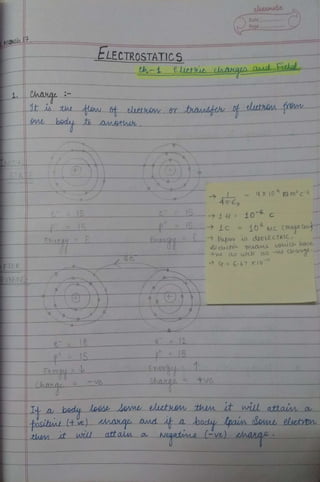 classmate
Date
Page
ELECTROSTATICS
Ch-1 Electric charges and Field
1. Charge :-
It is the flow of electron or transfer of electron from
one body to another.
e⁻ = 15
p⁺ = 15
Energy = E
e⁻ = 15
p⁺ = 15
Energy = E
→ 1/4πε₀ = 9 × 10⁹
→ 10⁻⁶ C
→ 1C = 10⁶ μC
→ Paper is DIELECTRIC.
means which have
+ve as well as -ve charge
→ G = 6.67 × 10⁻¹¹
e⁻ = 18
p⁺ = 15
Energy = ↓
Charge = -ve
e⁻ = 12
p⁺ = 15
Energy ↑
charge = +ve
If a body loose some electron then it will attain a
positive (+ve) charge and if a body Gain Some electron
then it will attain a Negative (-ve) charge.